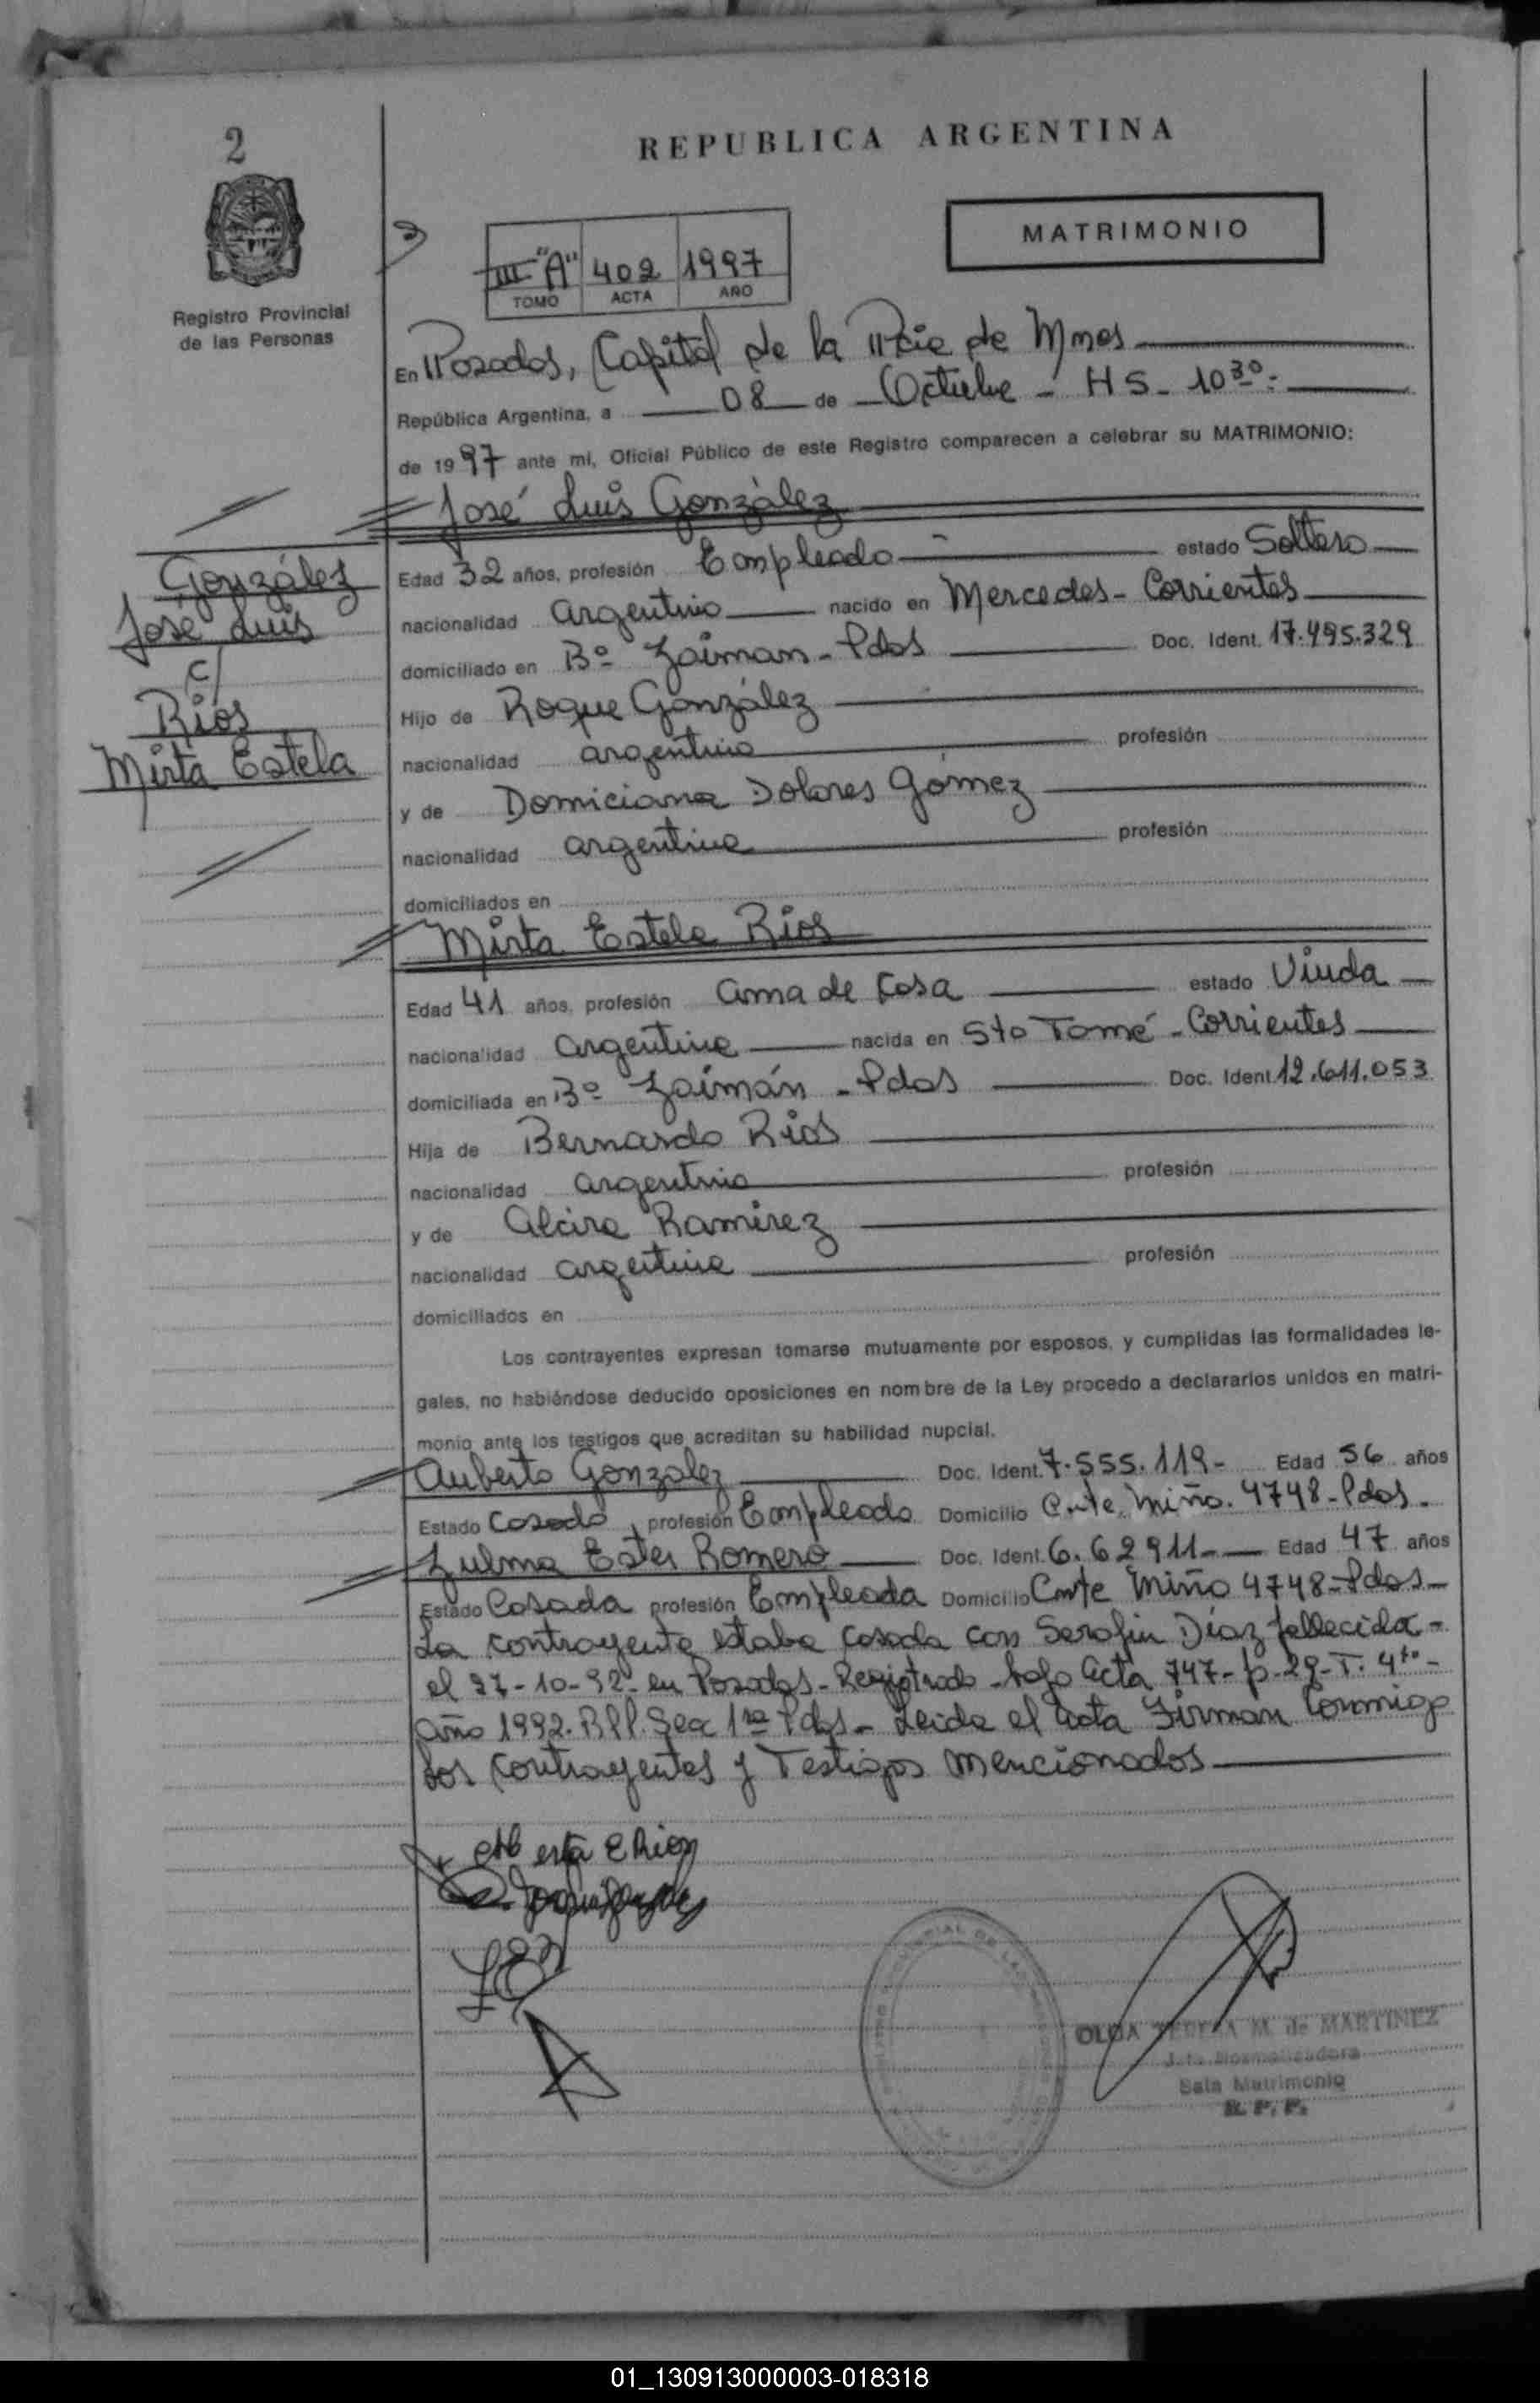 2
REPUBLICA ARGENTINA
MATRIMONIO
III "A" 402 1997
TOMO ACTA AÑO
Registro Provincial
de las Personas
En Posadas, Capital de la Pcia de Mnes
República Argentina, a 08 de Octubre - HS - 10 30 -
de 1997 ante mi, Oficial Público de este Registro comparecen a celebrar su MATRIMONIO:
José Luis González
González
José Luis
c/
Ríos
Mirta Estela
Edad 32 años, profesión Empleado estado Soltero
nacionalidad argentino nacido en Mercedes - Corrientes
domiciliado en Bº Zaiman - Pdas Doc. Ident. 17.495.329
Hijo de Roque González
nacionalidad argentino profesión
y de Domiciana Dolores Gómez
nacionalidad argentina profesión
domiciliados en
Mirta Estela Ríos
Edad 41 años, profesión ama de casa estado Viuda
nacionalidad Argentina nacida en Sto Tomé - Corrientes
domiciliada en Bº Zaimán - Pdas Doc. Ident. 12.611.053
Hija de Bernardo Ríos
nacionalidad argentino profesión
y de Alcira Ramírez
nacionalidad argentina profesión
domiciliados en
Los contrayentes expresan tomarse mutuamente por esposos, y cumplidas las formalidades le-
gales, no habiéndose deducido oposiciones en nombre de la Ley procedo a declararlos unidos en matri-
monio ante los testigos que acreditan su habilidad nupcial.
Auberto Gonzalez Doc. Ident. 7.555.119 - Edad 56 años
Estado Casado, profesión Empleado Domicilio Cnte. Miño. 4748 - Pdas.
Zulma Ester Romero Doc. Ident. 6.62911 - Edad 47 años
Estado Casada profesión Empleada Domicilio Cnte Miño 4748 - Pdas -
La contrayente estaba casada con Serafin Díaz fallecida -
el 27-10-92 - en Posadas - Registrado - bajo acta 747 - p - 29 - T. 4to -
año 1992. RPP. Secc 1ra Pdas - Leida el acta Firman conmigo
los contrayentes y Testigos mencionados
OLGA TERESA M. de MARTINEZ
Sala Matrimonio
R. P. P.
01_130913000003-018318